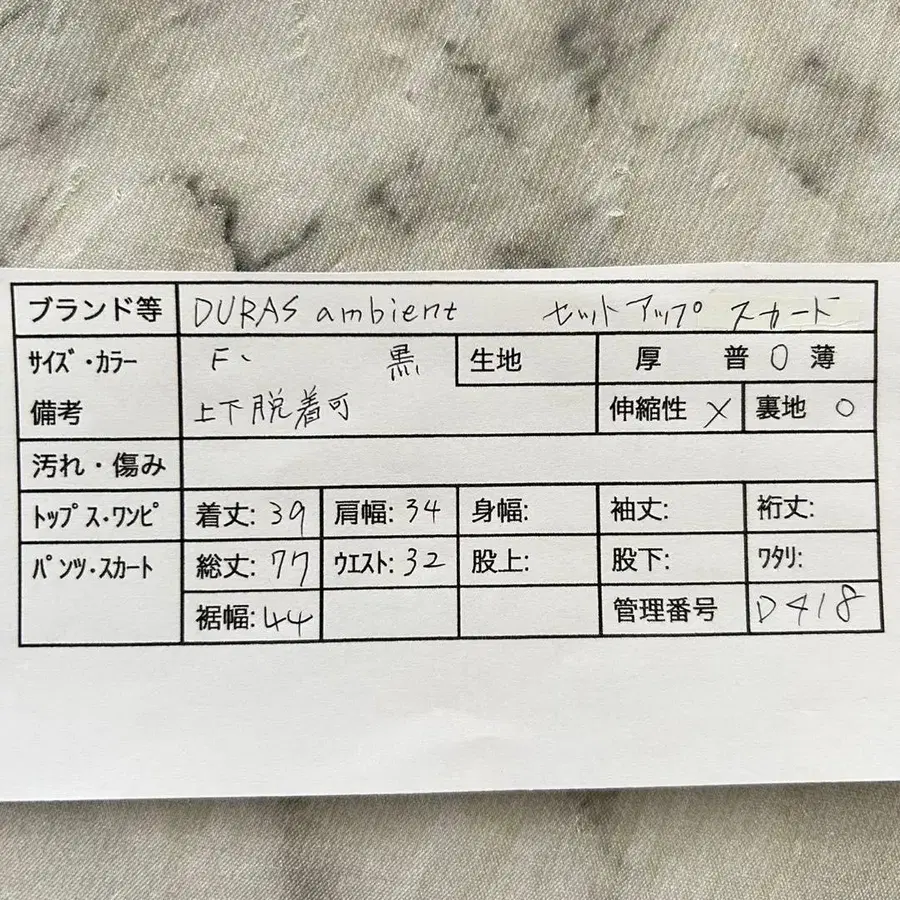 ブランド等 DURAS ambient セットアップ スカート
サイズ・カラー F、 黒 生地 厚 普 ○ 薄
備考 上下脱着可 伸縮性 × 裏地 ○
汚れ・傷み
トップス・ワンピ 着丈: 39 肩幅: 34 身幅: 袖丈: 裄丈:
パンツ・スカート 総丈: 77 ウエスト: 32 股上: 股下: ワタリ:
裾幅: 44 管理番号 D418